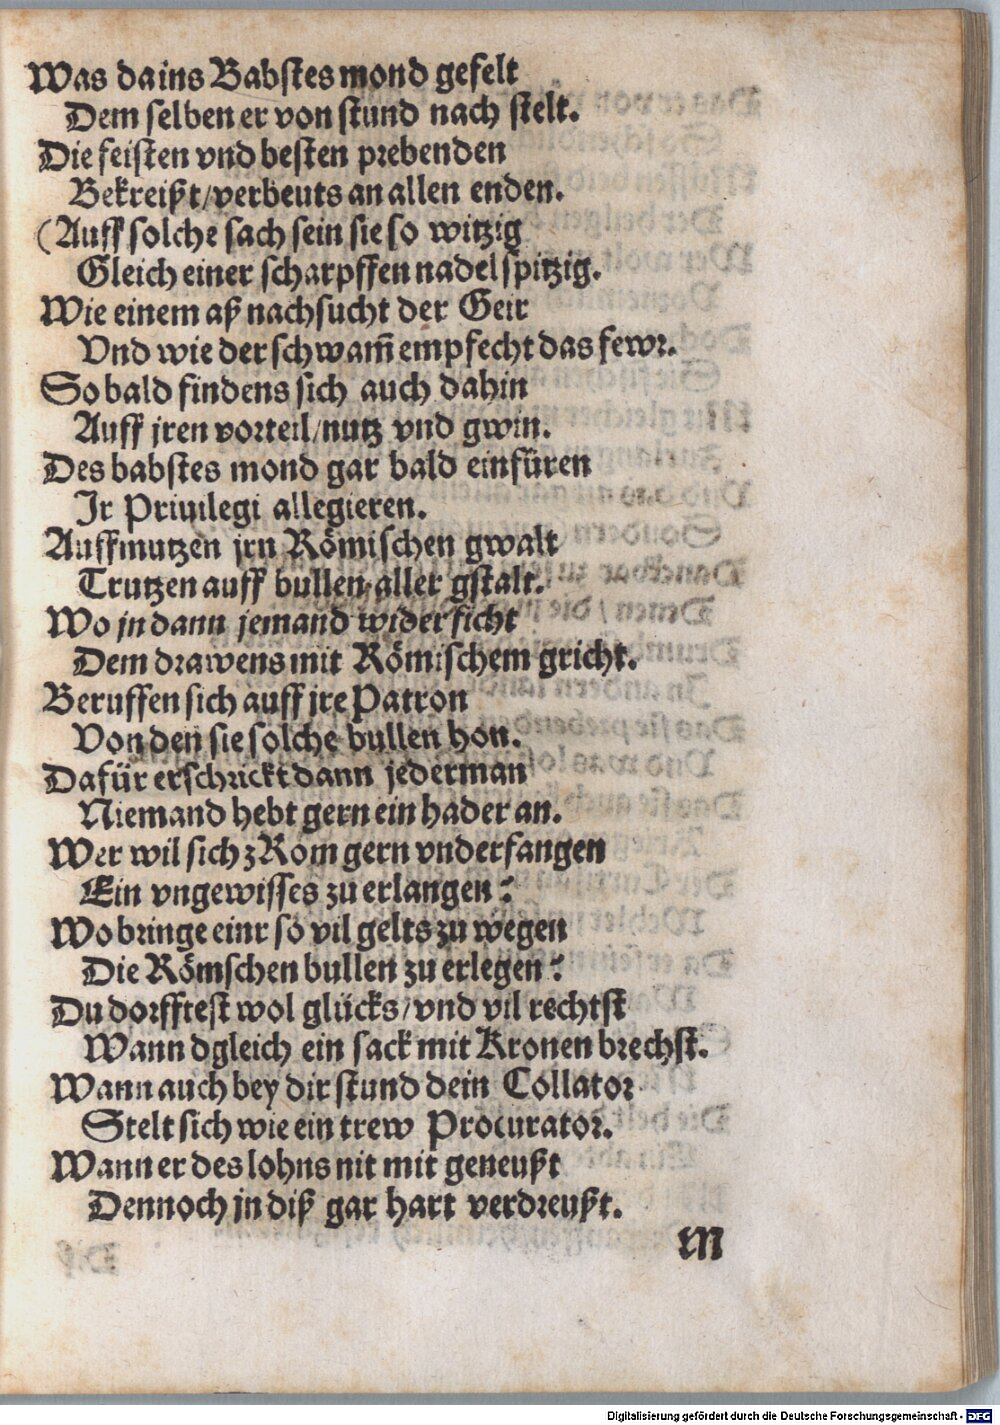 Was da ins Babstes mond gefelt
Dem selben er von stund nach stelt.
Die feisten vnd besten prebenden
Bekreißt/verbeuts an allen enden.
(Auff solche sach sein sie so witzig
Gleich einer scharpffen nadel spitzig.
Wie einem aß nachsucht der Geir
Vnd wie der schwam̃ empfecht das fewr.
So bald findens sich auch dahin
Auff jren vorteil/nutz vnd gwin.
Des babstes mond gar bald einfüren
Ir Priuilegi allegieren.
Auffmutzen jrn Römischen gwalt
Trutzen auff bullen aller gstalt.
Wo jn dann jemand widerficht
Dem drawens mit Römischem gricht.
Beruffen sich auff jre Patron
Von den sie solche bullen hon.
Dafür erschrickt dann jederman
Niemand hebt gern ein hader an.
Wer wil sich zRom gern vnderfangen
Ein vngewisses zu erlangen?
Wo bringe einr so vil gelts zu wegen
Die Römschen bullen zu erlegen?
Du dorfftest wol glücks/vnd vil rechtst
Wann dgleich ein sack mit Kronen brechst.
Wann auch bey dir stund dein Collator
Stelt sich wie ein trew Procurator.
Wann er des lohns nit mit geneußt
Dennoch jn diß gar hart verdreußt.
M
Digitalisierung gefördert durch die Deutsche Forschungsgemeinschaft - DFG